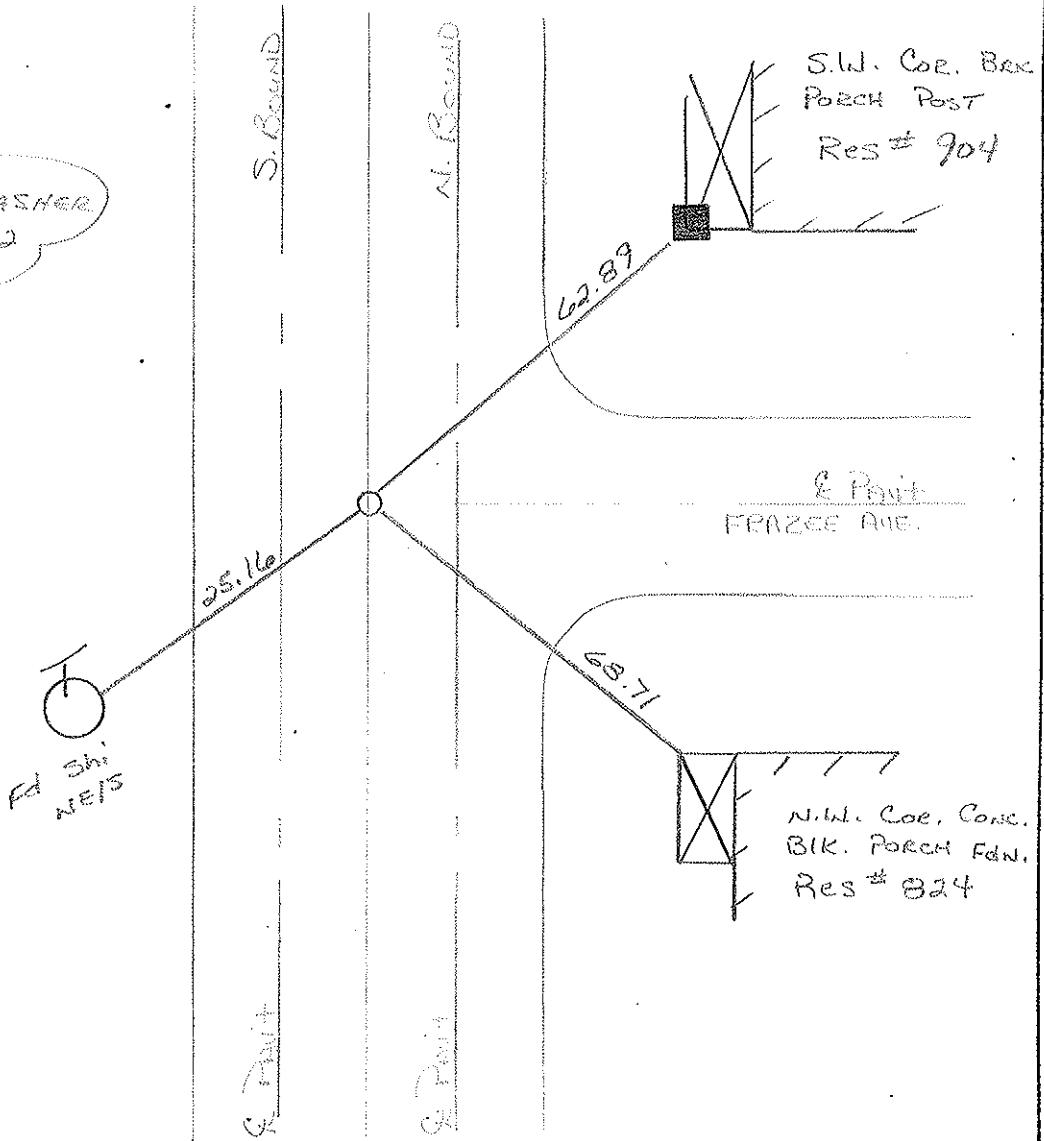 S. BOUND
N. BOUND
S.W. COR. BRK
PORCH POST
Res # 904
ASHER
2
62.89
℄ PAV'T
FRAZEE AVE.
25.16
68.71
Fd Shi
NE/S
N.W. COR. CONC.
BlK. PORCH FDN.
Res # 824
℄ PAV'T
℄ PAV'T